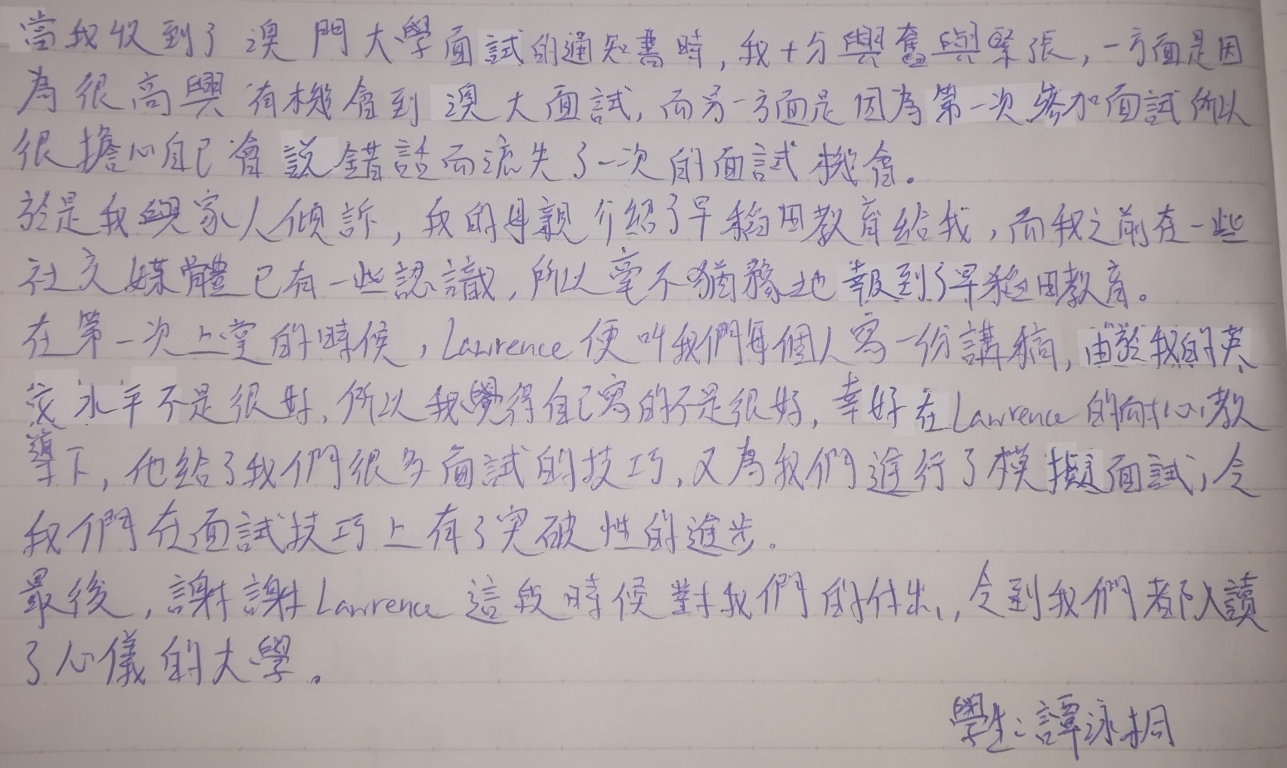 當我收到了澳門大學面試的通知書時，我十分興奮與緊張，一方面是因
為很高興有機會到澳大面試，而另一方面是因為第一次參加面試所以
很擔心自己會說錯話而流失了一次的面試機會。
於是我與家人傾訴，我的母親介紹了早稻田教育給我，而我之前在一些
社交媒體已有一些認識，所以毫不猶豫地報到了早稻田教育。
在第一次上堂的時候，Lawrence便叫我們每個人寫一份講稿，由於我的英
文水平不是很好，所以我覺得自己寫的不是很好，幸好在Lawrence的耐心教
導下，他給了我們很多面試的技巧，又為我們進行了模擬面試，令
我們在面試技巧上有了突破性的進步。
最後，謝謝Lawrence這段時候對我們的付出，令到我們都入讀
了心儀的大學。
學生：譚泳桐